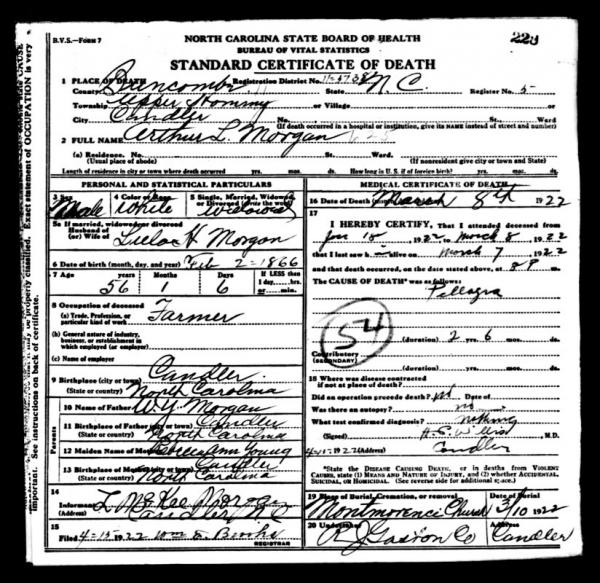 B.V.S.—Form 7
NORTH CAROLINA STATE BOARD OF HEALTH
BUREAU OF VITAL STATISTICS
229
STANDARD CERTIFICATE OF DEATH
1 PLACE OF DEATH
County Buncombe Registration District No. State N.C. Register No. 5
Township Upper Hommy or Village
City Candler No. St. Ward
(If death occurred in a hospital or institution, give its NAME instead of street and number)
2 FULL NAME Arthur L. Morgan
(a) Residence. No. St. Ward.
(Usual place of abode) (If nonresident give city or town and State)
Length of residence in city or town where death occurred yrs. mos. ds. How long in U.S. if of foreign birth? yrs. mos. ds.
PERSONAL AND STATISTICAL PARTICULARS
3 Sex 4 Color or Race 5 Single, Married, Widowed, or Divorced (write the word)
Male White Widowed
5a If married, widowed or divorced
Husband of
(or) Wife of H Morgan
6 Date of birth (month, day, and year) Feb 2-1866
7 Age Years Months Days If LESS than
56 1 6 1 day, hrs.
or min.
8 Occupation of deceased
(a) Trade, Profession, or
particular kind of work Farmer
(b) General nature of industry,
business, or establishment in
which employed (or employer)
(c) Name of employer
9 Birthplace (city or town) Candler
(State or country) North Carolina
Parents
10 Name of Father W.Y. Morgan
11 Birthplace of Father (city or town) Candler
(State or country) North Carolina
12 Maiden Name of Mother Ann Young
13 Birthplace of Mother (city or town) Candler
(State or country) North Carolina
14
Informant L. McKee Morgan
(Address) Candler N.C.
15
Filed 4-15-1922 Wm E. Brooks
REGISTRAR
MEDICAL CERTIFICATE OF DEATH
16 Date of Death March 8th 1922
17
I HEREBY CERTIFY, That I attended deceased
from Jan 10 1922 to March 8, 1922
that I last saw h alive on March 7 1922
and that death occurred, on the date stated above, at 8 P m.
The CAUSE OF DEATH* was as follows:
Pellagra
54
(duration) 2 yrs. 6 mos. ds.
Contributory
(SECONDARY)
(duration) yrs. mos. ds.
18 Where was disease contracted
if not at place of death?
Did an operation precede death? no Date of
Was there an autopsy? no
What test confirmed diagnosis? nothing
(Signed) Willis M.D.
4-15-1922 (Address) Candler
*State the Disease Causing Death, or in deaths from Violent
Causes, state (1) Means and Nature of Injury, and (2) whether Accidental,
Suicidal, or Homicidal. (See reverse side for additional space.)
19 Place of Burial, Cremation, or removal Date of Burial
Montmorenci Church 3/10 1922
20 Undertaker Address
R J Gaston Co Candler